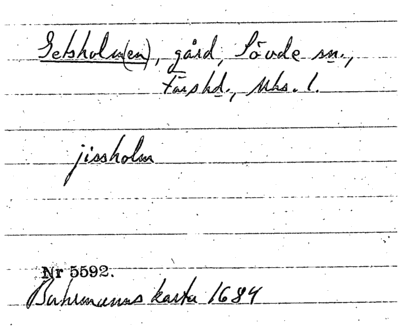 Getsholm(en), gård, Sövde sn.,
Färs hd., Mhs. l.
jissholm
Nr 5592.
Buhrmanns karta 1684